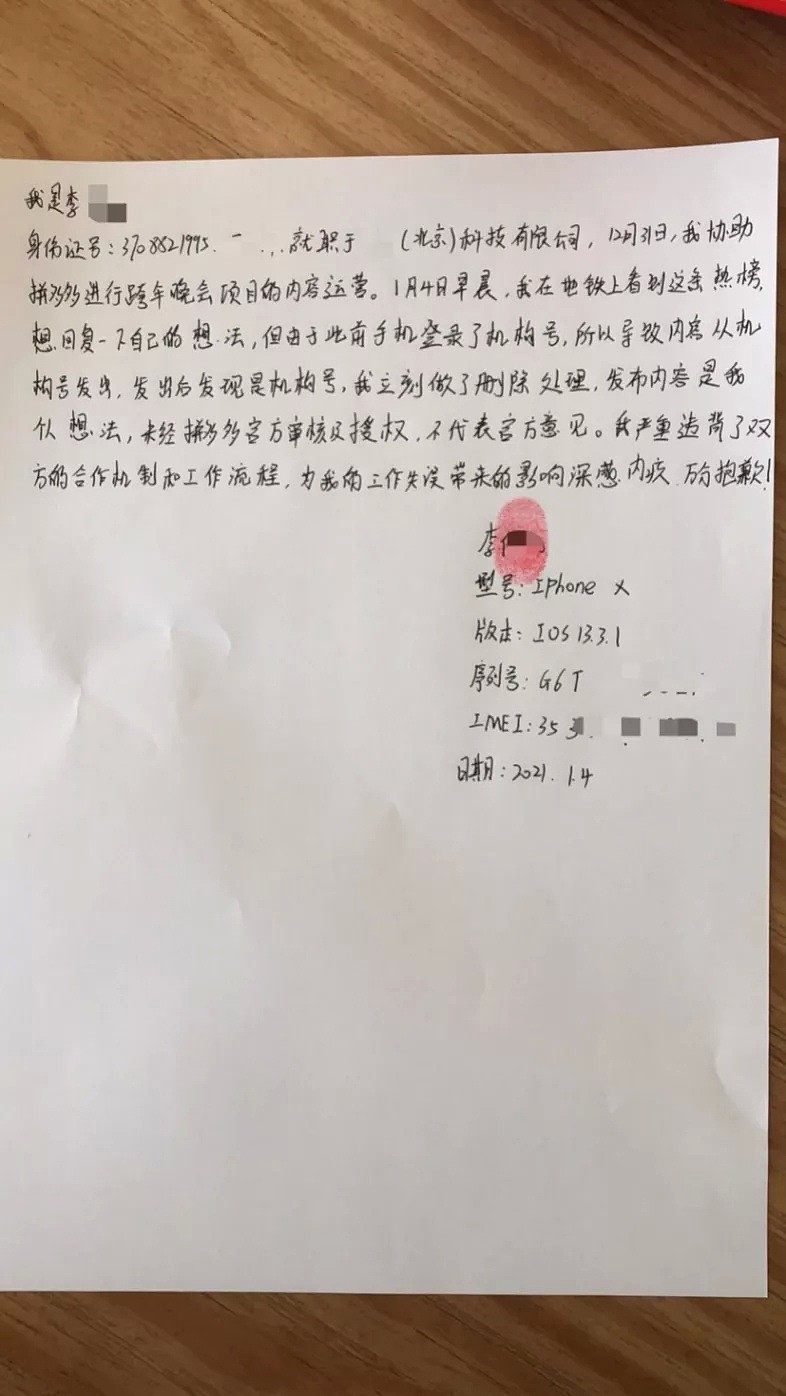 我是李
身份证号：3708821995. 就职于 （北京）科技有限公司，12月31日，我协助
拼多多进行跨年晚会项目的内容运营。1月4日早晨，我在地铁上看到这条热榜，
想回复一下自己的想法，但由于此前手机登录了机构号，所以导致内容从机
构号发出，发出后发现是机构号，我立刻做了删除处理，发布内容是我
个人想法，未经拼多多官方审核及授权，不代表官方意见。我严重违背了双
方的合作机制和工作流程，为我的工作失误带来的影响深感内疚，万分抱歉！
李
型号：IPhone X
版本：IOS 13.3.1
序列号：G6T
IMEI：353
日期：2021.1.4